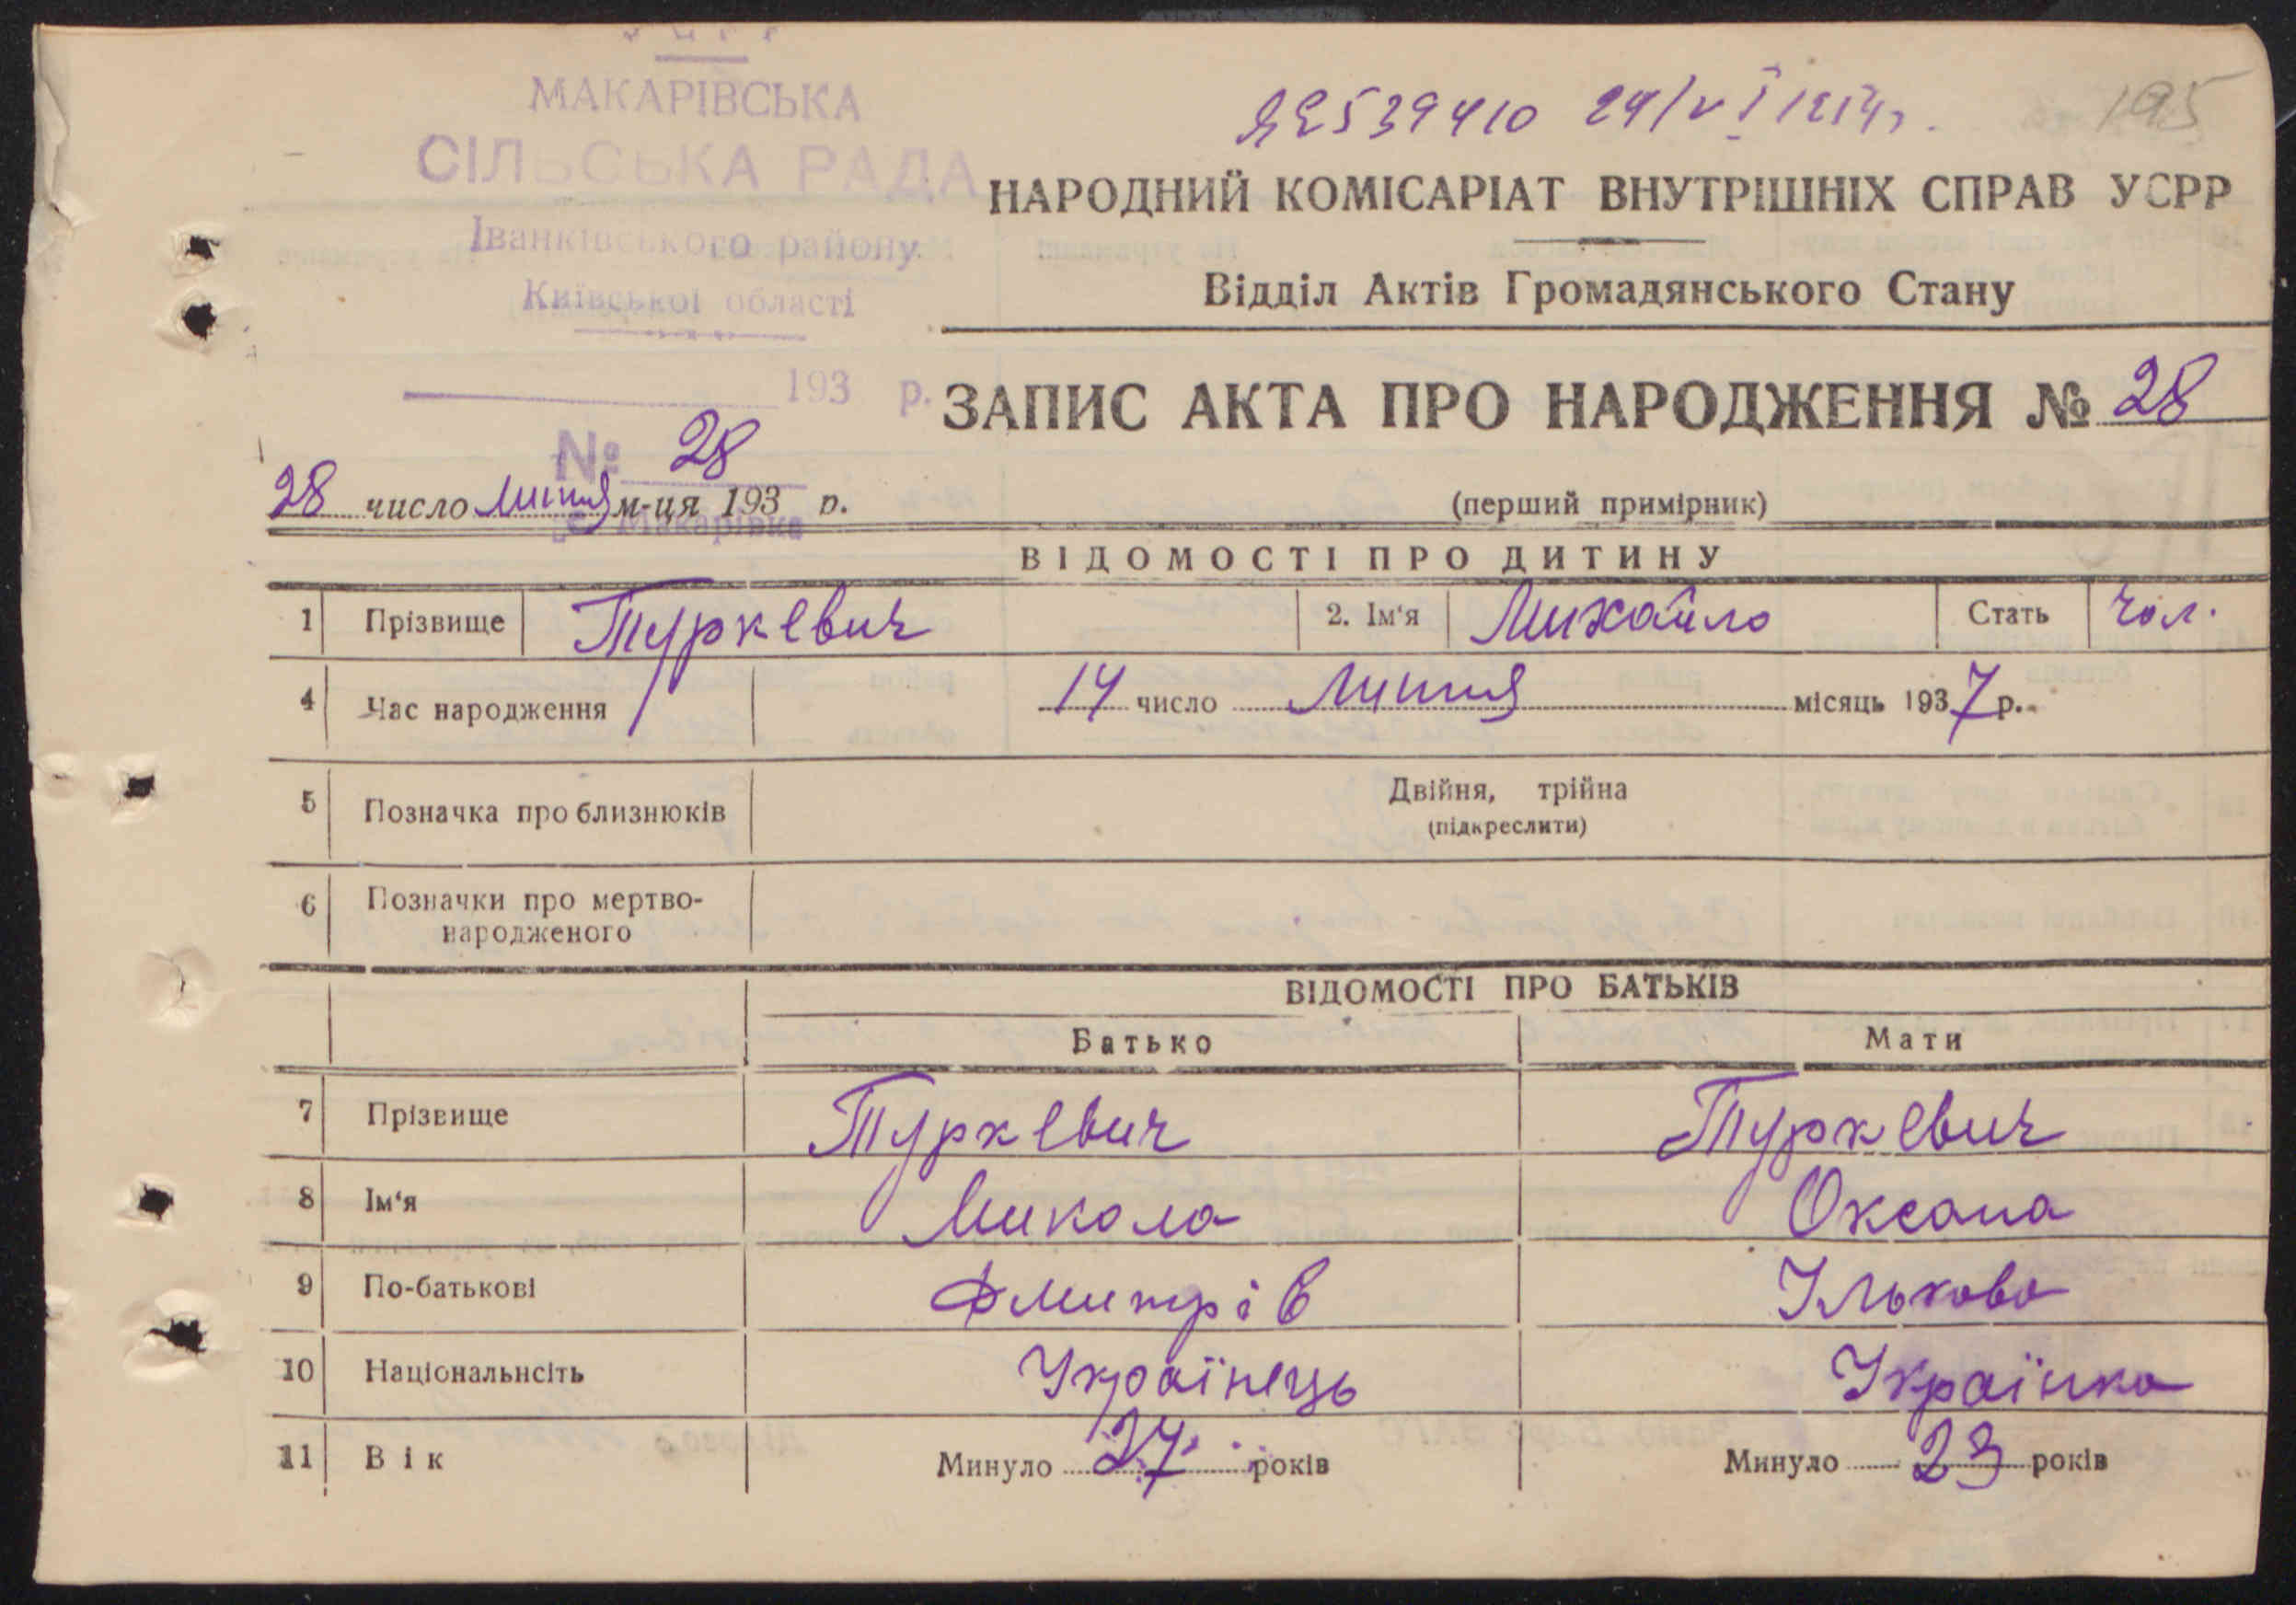 УСРР
МАКАРІВСЬКА
СІЛЬСЬКА РАДА
Іванківського району
Київської області
193 р.
№ 28
с. Макарівка
195
НАРОДНИЙ КОМІСАРІАТ ВНУТРІШНІХ СПРАВ УСРР
Відділ Актів Громадянського Стану
ЗАПИС АКТА ПРО НАРОДЖЕННЯ № 28
28 число Липня м-ця 193 р.
(перший примірник)
ВІДОМОСТІ ПРО ДИТИНУ
1 Прізвище Туркевич 2. Ім'я Михайло Стать чол.
4 Час народження 14 число Липня місяць 1937 р.
5 Позначка про близнюків Двійня, трійна
(підкреслити)
6 Позначки про мертво-
народженого
ВІДОМОСТІ ПРО БАТЬКІВ
Батько Мати
7 Прізвище Туркевич Туркевич
8 Ім'я Микола Оксана
9 По-батькові Дмитрів Ількова
10 Національнсіть Українець Українка
11 Вік Минуло 27 років Минуло 23 років